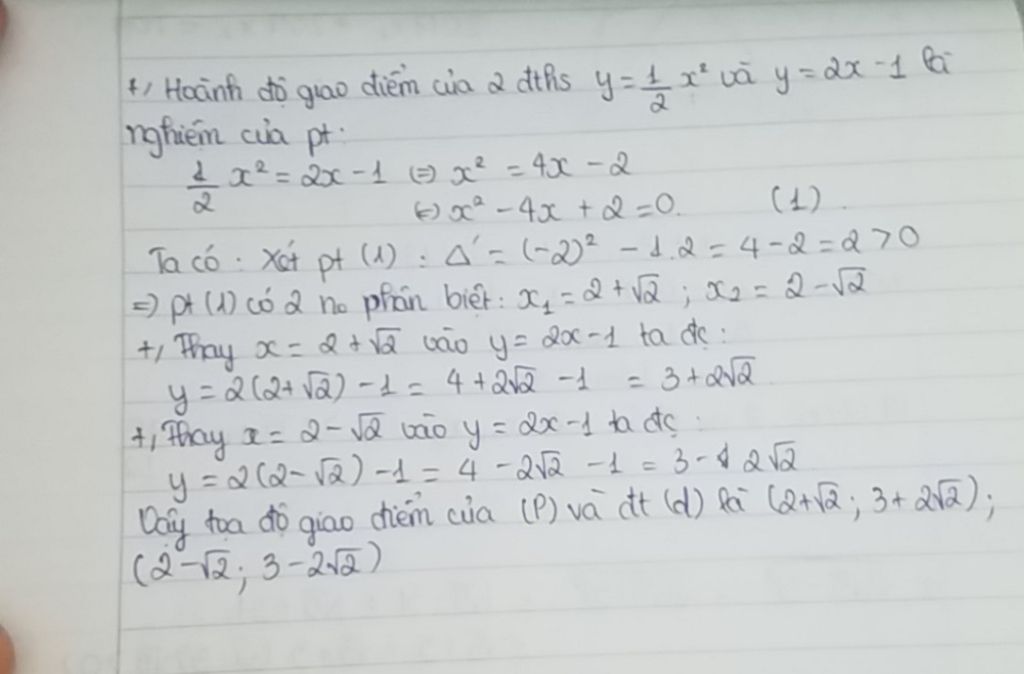 +, Hoành độ giao điểm của 2 đths y = 1/2 x² và y = 2x - 1 là
nghiệm của pt:
1/2 x² = 2x - 1 (=) x² = 4x - 2
(=) x² - 4x + 2 = 0. (1).
Ta có: Xét pt (1): Δ' = (-2)² - 1.2 = 4 - 2 = 2 > 0
=) pt (1) có 2 no phân biệt: x₁ = 2 + √2 ; x₂ = 2 - √2
+, Thay x = 2 + √2 vào y = 2x - 1 ta đc:
y = 2(2 + √2) - 1 = 4 + 2√2 - 1 = 3 + 2√2
+, Thay x = 2 - √2 vào y = 2x - 1 ta đc:
y = 2(2 - √2) - 1 = 4 - 2√2 - 1 = 3 - 2√2
Vậy tọa độ giao điểm của (P) và đt (d) là (2+√2; 3 + 2√2);
(2 - √2; 3 - 2√2)